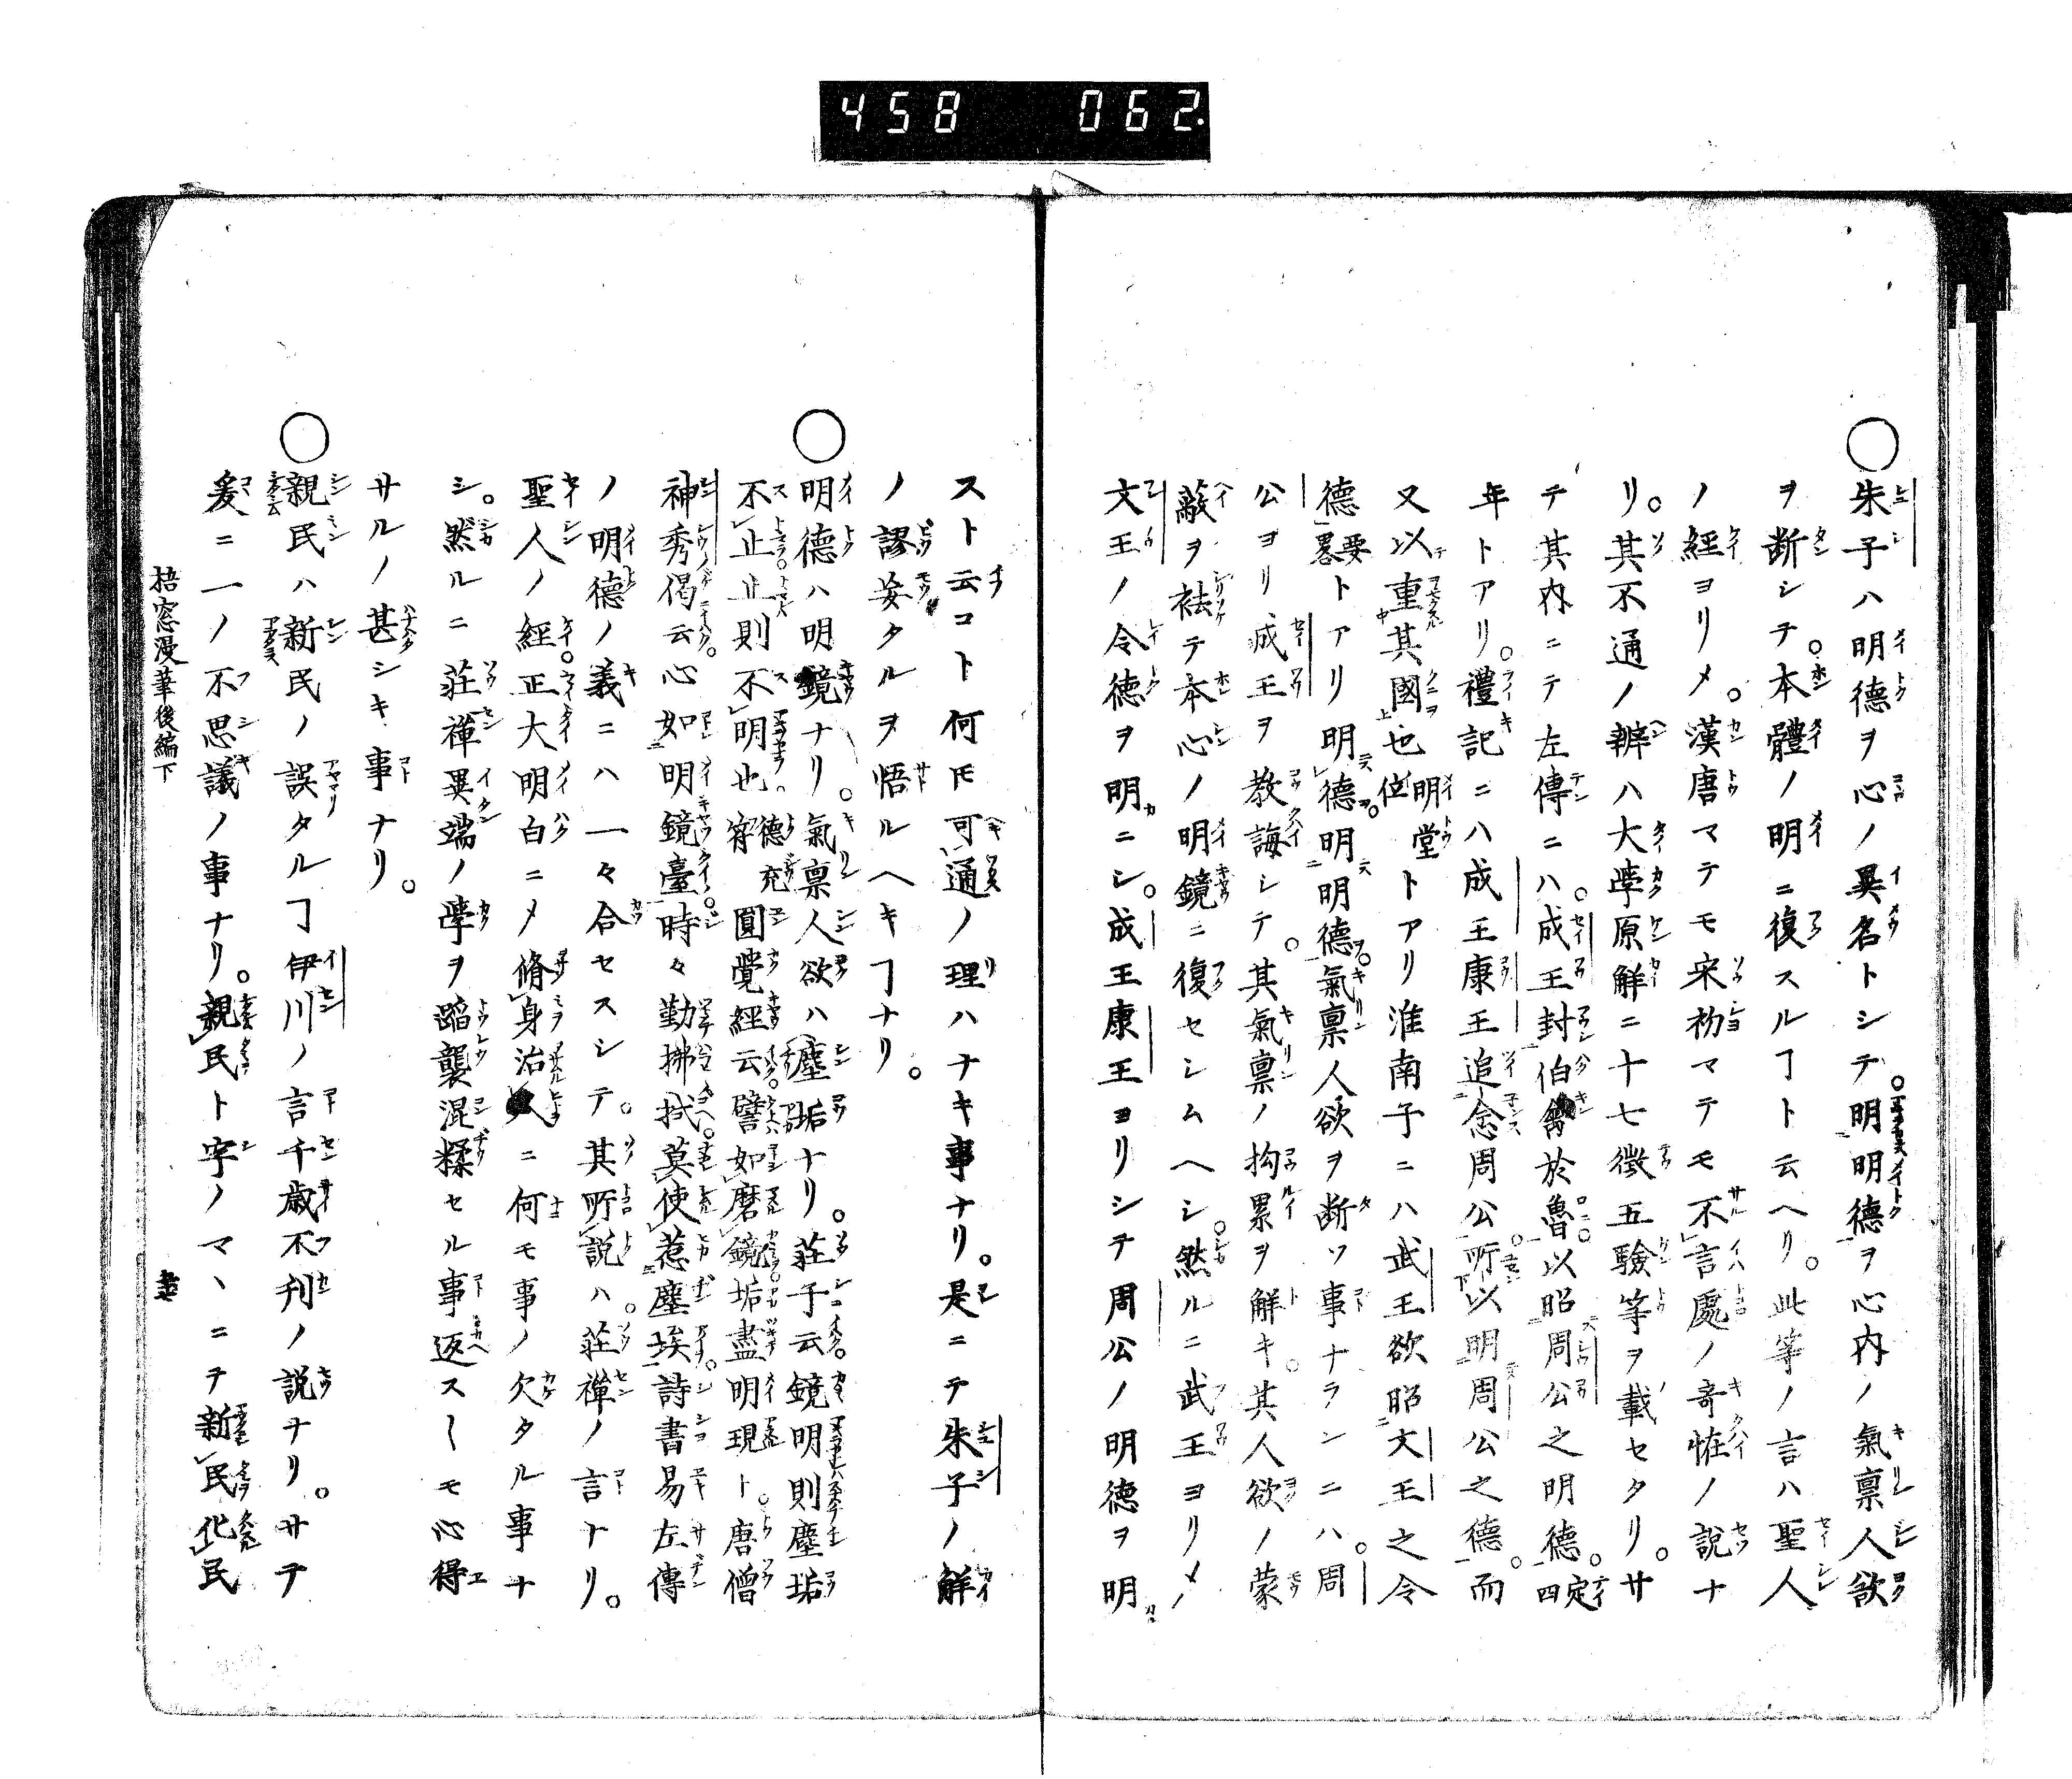 458 062.
○朱子ハ明德ヲ心ノ異名トシテ。明明德ヲ心内ノ氣禀人欲
ヲ断シテ。本體ノ明ニ復スルヿト云ヘリ。此等ノ言ハ聖人
ノ經ヨリメ。漢唐マテモ宋初マテモ不言處ノ奇怪ノ說ナ
リ。其不通ノ辨ハ大學原解ニ十七徴五驗等ヲ載セタリ。サ
テ其内ニテ左傳ニハ。成王封伯禽於魯。以昭周公之明德。定四
年トアリ。禮記ニハ成王康王追念周公。所以明周公之德。而
又以重其國也明堂位トアリ淮南子ニハ武王欲昭文王之令
德要畧トアリ明德。明明德。氣禀人欲ヲ断ツ事ナランニハ。周
公ヨリ成王ヲ教誨シテ。其氣禀ノ拘累ヲ解キ。其人欲ノ蒙
蔽ヲ袪テ本心ノ明鏡ニ復セシムヘシ。然ルニ武王ヨリメ
文王ノ令德ヲ明ニシ。成王康王ヨリシテ周公ノ明德ヲ明
スト云コト何ﾓ可通ノ理ハナキ事ナリ。是ニテ朱子ノ解
ノ謬妄タルヲ悟ルヘキヿナリ。
○明德ハ明鏡ナリ。氣禀人欲ハ塵垢ナリ。莊子云鏡明則塵垢
不止。止則不明也。德充符圓覺經云譬如磨鏡。垢盡明現ト。唐僧
神秀偈云。心如明鏡臺。時々勤拂拭。莫使惹塵埃。詩書易左傳
ノ明德ノ義ニハ一々合セスシテ。其所説ハ。莊禪ノ言ナリ。
聖人ノ經。正大明白ニメ脩身治人ニ何モ事ノ欠タル事ナ
シ。然ルニ莊禪異端ノ學ヲ蹈襲混糅セル事返スーモ心得
サルノ甚シキ事ナリ。
○親民ハ新民ノ誤タルヿ伊川ノ言千歳不刊ノ説ナリ。サテ
爰ニ一ノ不思議ノ事ナリ。親民ト字ノマヽニテ新民化民
梧窓漫筆後編下